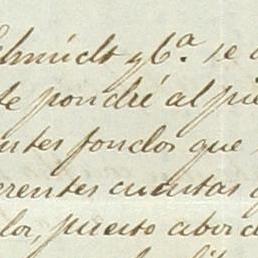 Schmidt y Cª. se
te pondré al pie
ntes fondos que
erentes cuentas
lor, puesto abordo